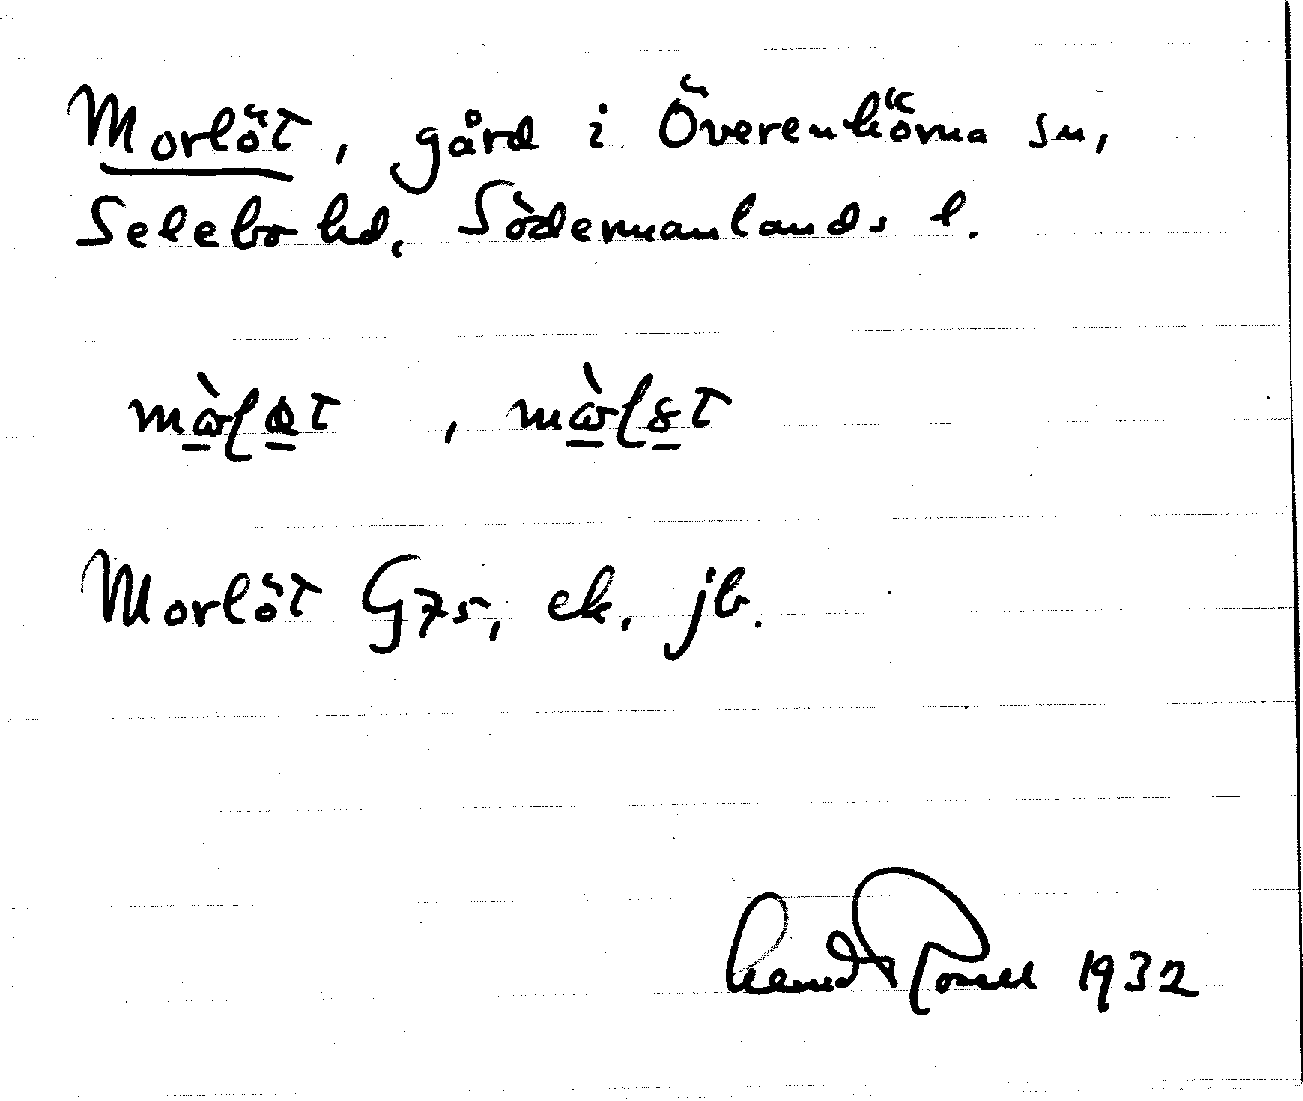 Morlöt, gård i Överenhörna sn,
Selebo hd, Södermanlands l.
Morlöt G75, ek, jb.
1932